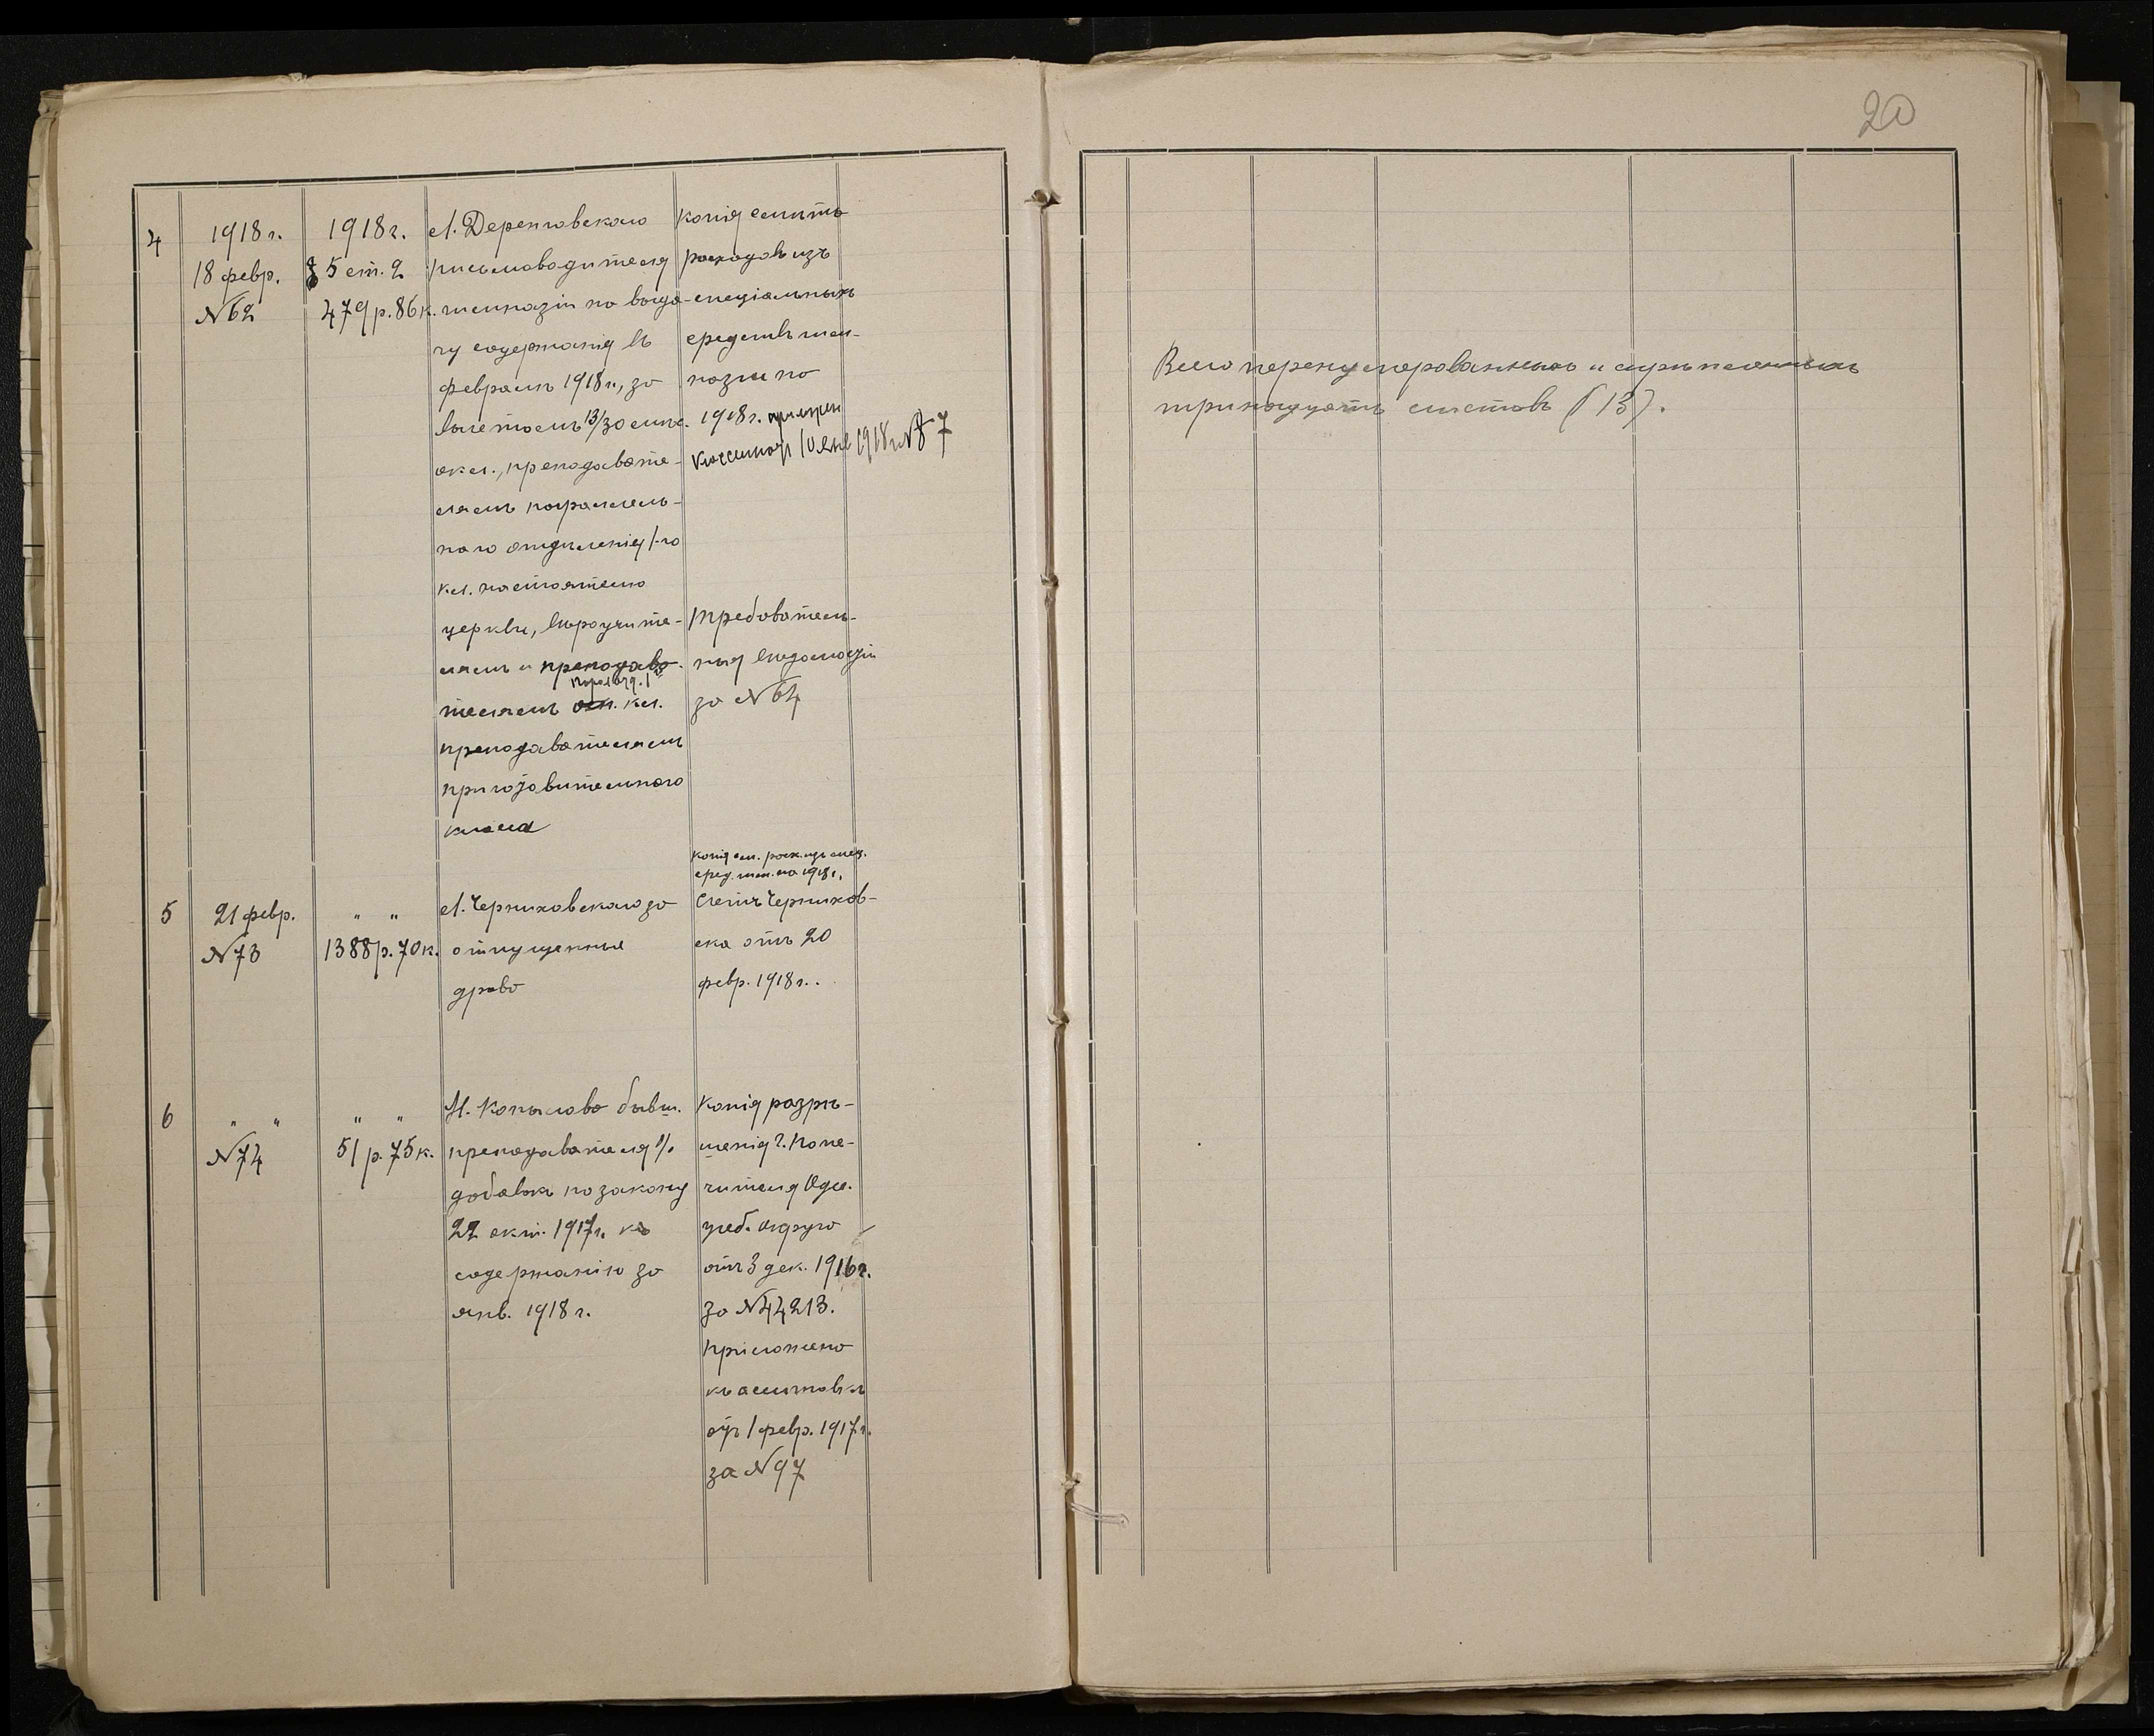 20
4
1918 г.
18 февр.
№ 62
1918 г.
§ 5 ст. 2
479 р. 86 к.
Л. Деренговскаго
письмоводителя
гимназіи на выда-
чу содержанія въ
февралѣ 1918 г., за
вычетомъ 13/30 мѣс.
окл., преподавате-
лямъ параллель-
наго отдѣленія 1-го
кл. настоятелю
церкви, вѣроучите-
лямъ и преподава-
парал. отд. 1
телямъ осн. кл.
преподавателямъ
приготовительнаго
класса
Копія смѣты
расходовъ изъ
спеціальныхъ
средствъ гим-
назіи на
1918 г.
10 янв 1918 г. № 7
Требователь-
ныя вѣдомости
за № 64
5
21 февр.
№ 73
" "
1388 р. 70 к.
Л. Черниховскаго за
отпущенныя
дрова
Копія см. расх. изъ спец.
сред. гим. на 1918 г.
Счетъ Чернихов-
ска отъ 20
февр. 1918 г.
6
" "
№ 74
" "
51 р. 75 к.
И. Копылова бывш.
преподавателя %
добавокъ по закону
22 окт. 1917 г. къ
содержанію за
янв. 1918 г.
Копія разрѣ-
шенія г. Попе-
чителя Одес.
учеб. округа
отъ 3 дек. 1916 г.
за № 44213.
приложено
къ ассигновкѣ
отъ 1 февр. 1917 г.
за № 97
Всего перенумерованныхъ и скрѣпленныхъ
тринадцать листовъ (13).